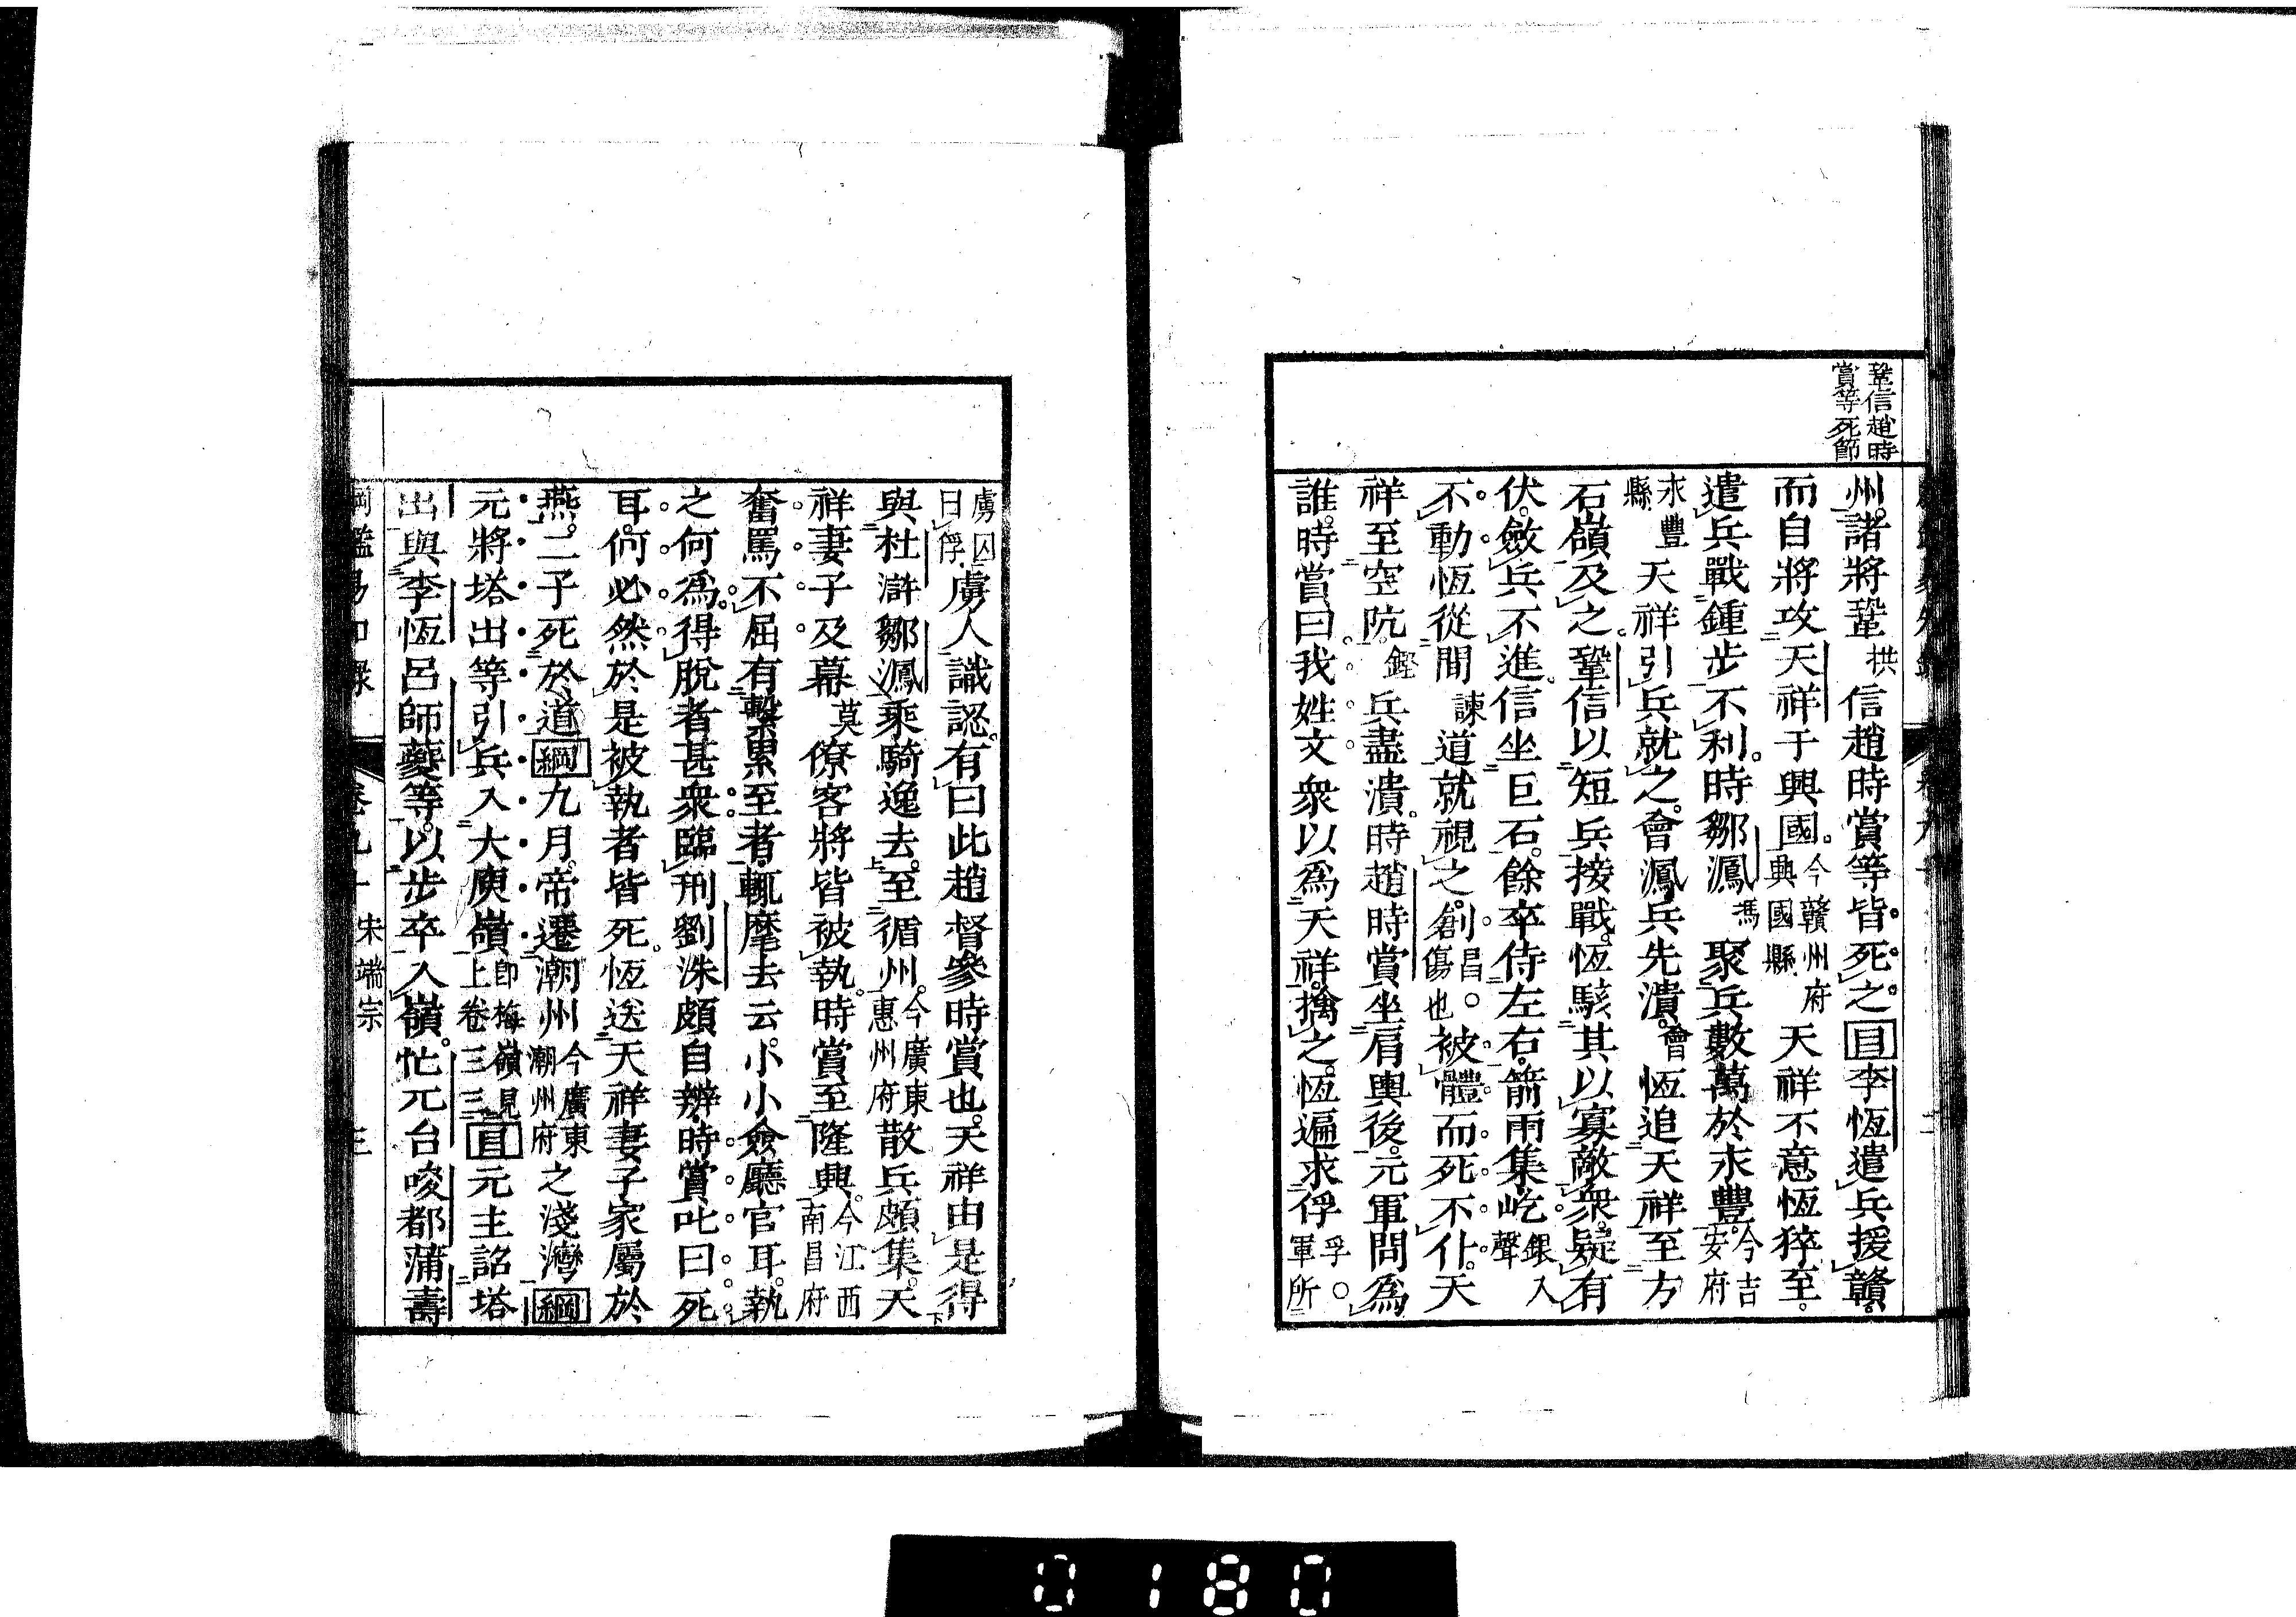 鞏信趙時
賞等死節
州諸將鞏拱信趙時賞等皆死之目李恆遣兵援贛
而自將攻天祥于興國今贛州府興國縣天祥不意恆猝至
遣兵戰鍾步不利時鄒㵯馮聚兵數萬於永豐今吉安府
永豐縣天祥引兵就之會㵯兵先潰會恆追天祥至方
石嶺及之鞏信以短兵接戰恆駭其以寡敵衆疑有
伏斂兵不進信坐巨石餘卒侍左右箭雨集屹銀入聲
不動恆從間諫道就視之創昌○傷也被體而死不仆天
祥至空阬鏗兵盡潰時趙時賞坐肩輿後元軍問爲
誰時賞曰我姓文衆以爲天祥擒之恆遍求俘孚○軍所
虜囚曰俘虜人識認有曰此趙督參時賞也天祥由是得
與杜滸鄒㵯乘騎逸去至循州今廣東惠州府散兵頗集天
祥妻子及幕莫僚客將皆被執時賞至隆興今江西南昌府
奮罵不屈有繫累至者輒麾去云小小僉廳官耳執
之何爲得脫者甚衆臨刑劉洙頗自辨時賞叱曰死
耳何必然於是被執者皆死恆送天祥妻子家屬於
燕二子死於道綱九月帝遷潮州今廣東潮州府之淺灣綱
元將塔出等引兵入大庾嶺卽梅嶺見上卷三三目元主詔塔
出與李恆呂師夔等以步卒入嶺忙元台唆都蒲壽
綱鑑易知錄 卷九十 宋端宗 三
0180